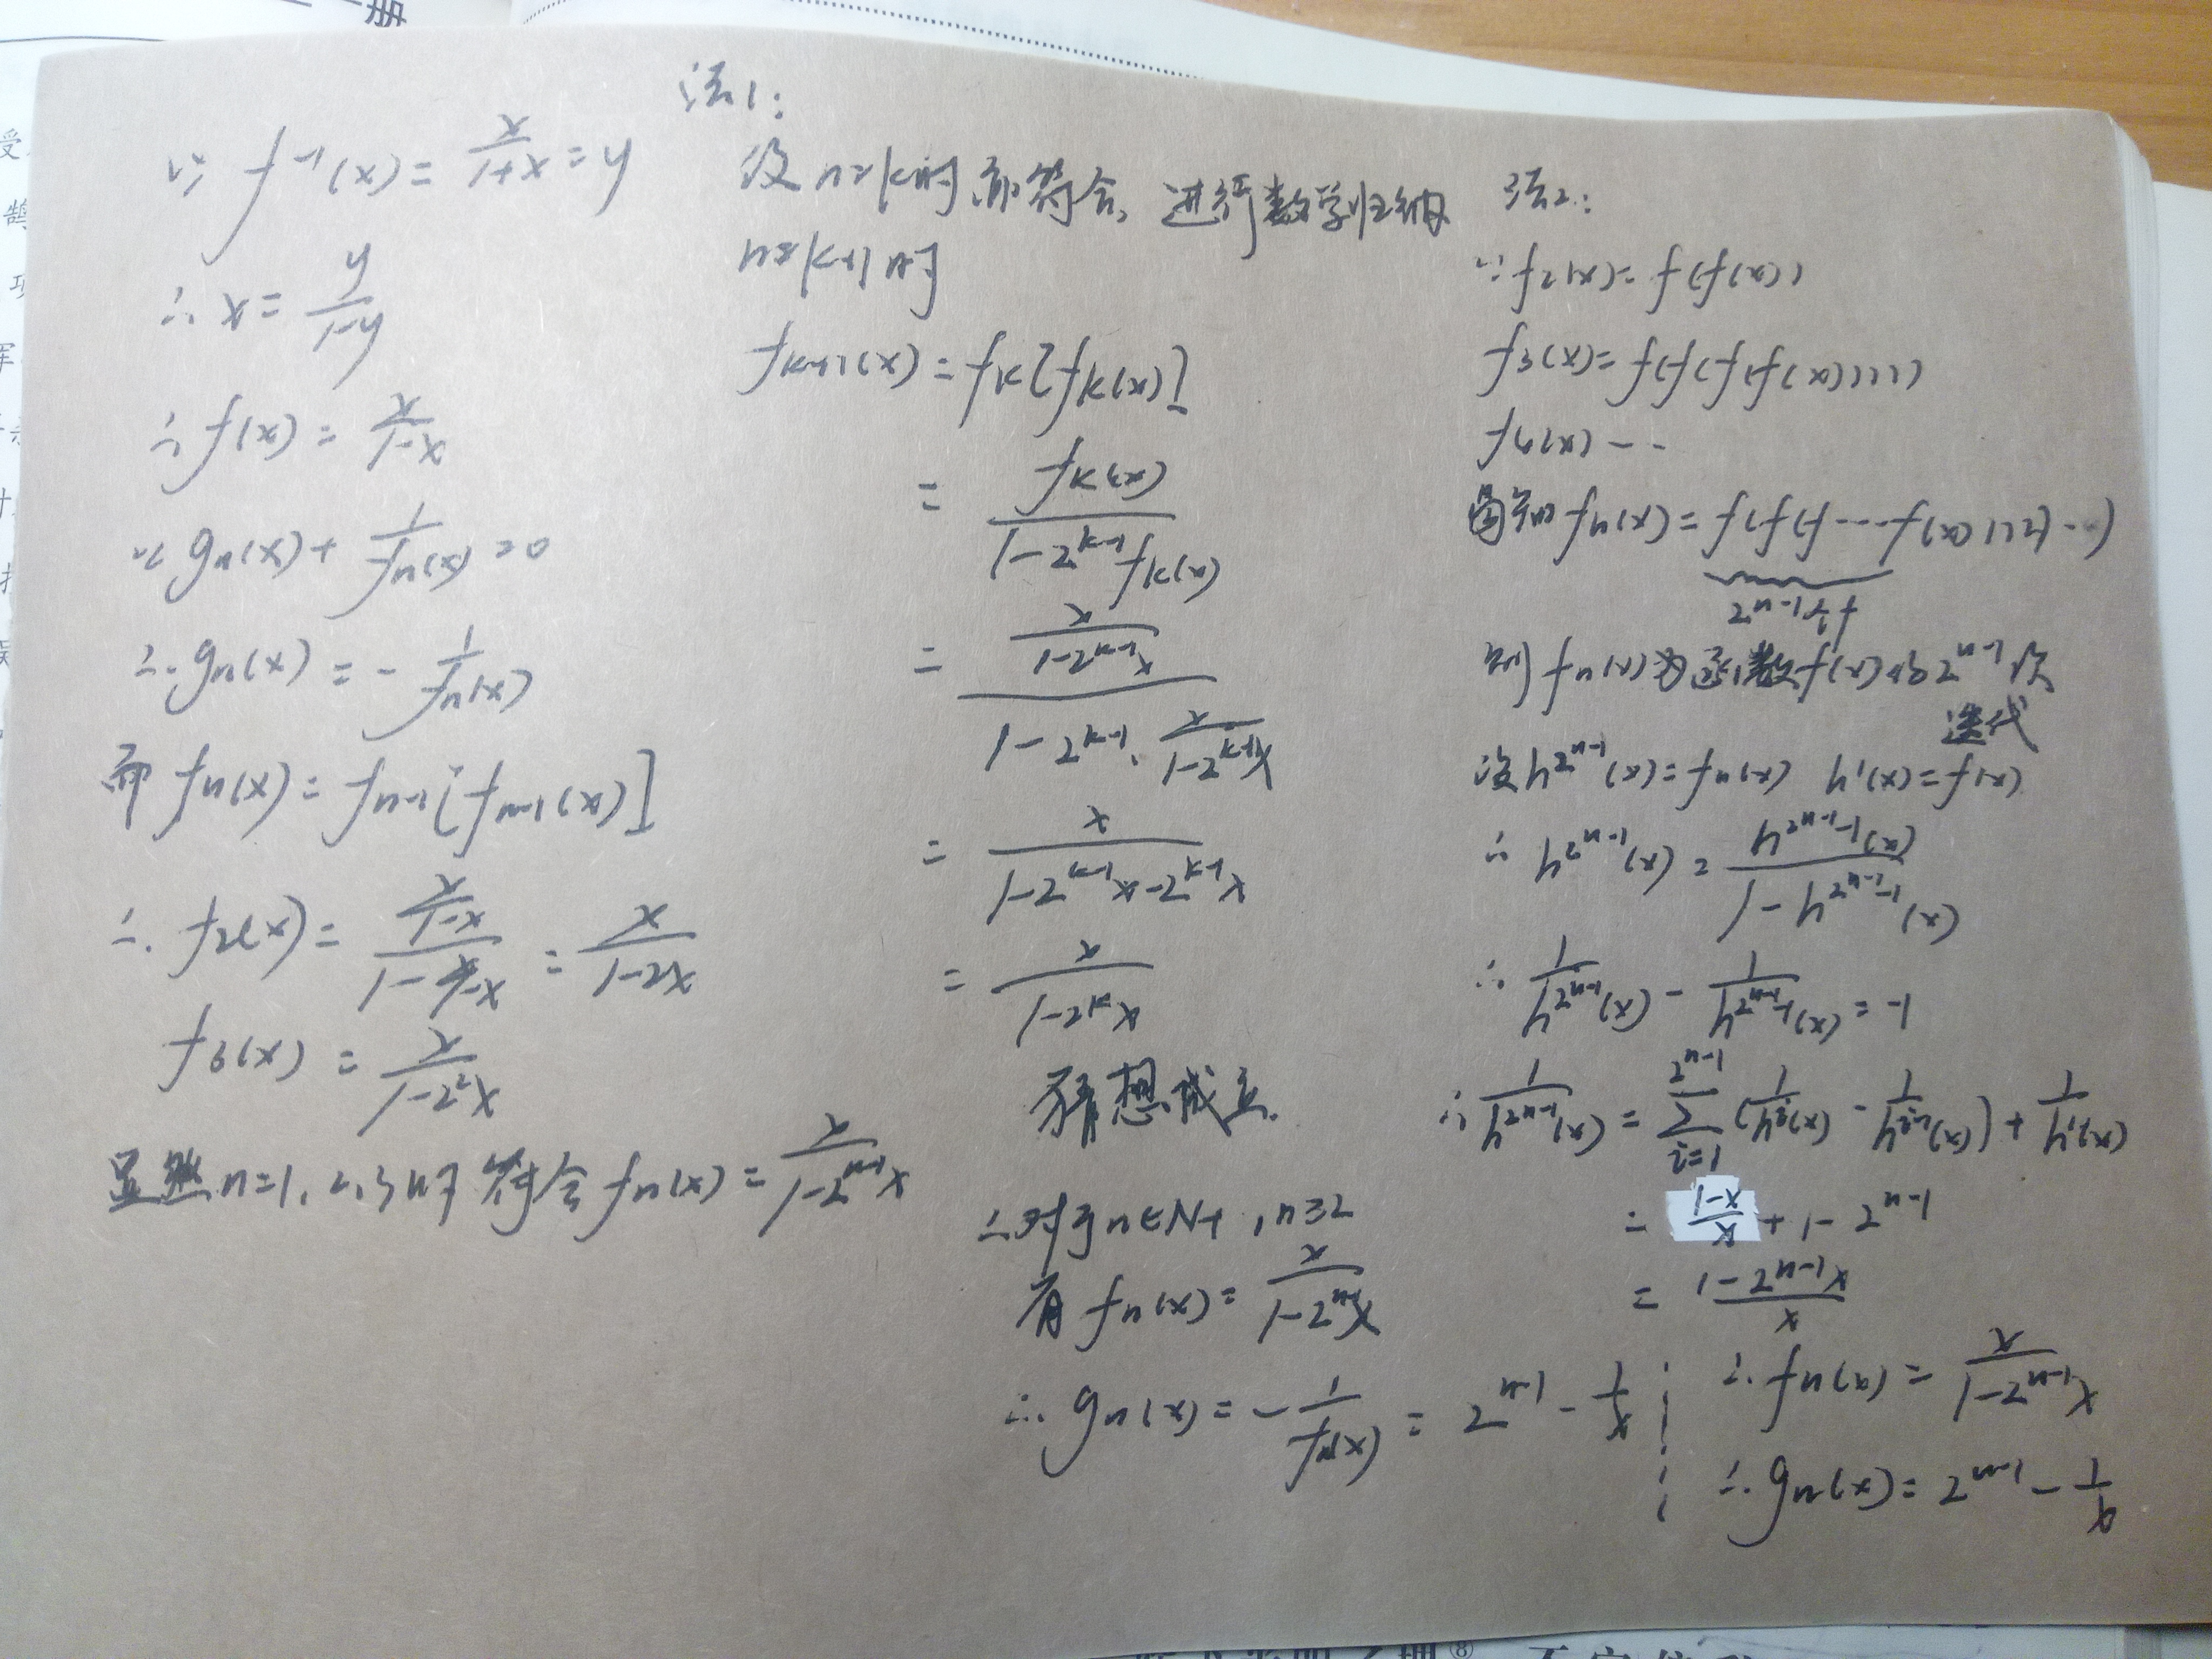 册
∵ f⁻¹(x) = x/(1+x) = y
∴ x = y/(1-y)
∴ f(x) = x/(1-x)
∵ gn(x) + 1/fn(x) = 0
∴ gn(x) = - 1/fn(x)
而 fn(x) = fn-1[fn-1(x)]
∴ f2(x) = (x/(1-x))/(1 - x/(1-x)) = x/(1-2x)
f3(x) = x/(1-2²x)
显然 n=1, 2, 3时 符合 fn(x) = x/(1-2ⁿ⁻¹x)
法1:
设 n=k时 亦符合, 进行数学归纳
n=k+1时
fk+1(x) = fk[fk(x)]
= fk(x)/(1-2ᵏ⁻¹fk(x))
= (x/(1-2ᵏ⁻¹x))/(1-2ᵏ⁻¹·x/(1-2ᵏ⁻¹x))
= x/(1-2ᵏ⁻¹x-2ᵏ⁻¹x)
= x/(1-2ᵏx)
猜想成立.
∴对于n∈N+, n≥2
有 fn(x) = x/(1-2ⁿ⁻¹x)
∴ gn(x) = - 1/fn(x) = 2ⁿ⁻¹ - 1/x
法2:
∵ f2(x) = f(f(x))
f3(x) = f(f(f(f(x))))
f4(x) - -
fn(x) = f(f(f ⋯ f(x)))⋯)
2ⁿ⁻¹个f
则 fn(x) 为函数f(x)的2ⁿ⁻¹次
迭代
设 h^(2ⁿ⁻¹)(x) = fn(x) h¹(x) = f(x)
∴ h^(2ⁿ⁻¹)(x) = h^(2ⁿ⁻¹-1)(x)/(1 - h^(2ⁿ⁻¹-1)(x))
∴ 1/h^(2ⁿ⁻¹)(x) - 1/h^(2ⁿ⁻¹-1)(x) = -1
∴ 1/h^(2ⁿ⁻¹)(x) = Σ_(i=1)^(2ⁿ⁻¹) (1/hⁱ(x) - 1/hⁱ⁻¹(x)) + 1/h¹(x)
= (1-x)/x + 1 - 2ⁿ⁻¹
= (1-2ⁿ⁻¹x)/x
∴ fn(x) = x/(1-2ⁿ⁻¹x)
∴ gn(x) = 2ⁿ⁻¹ - 1/x